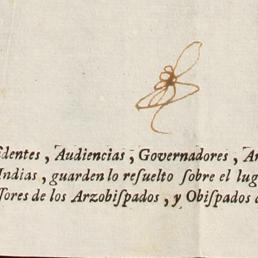 ſidentes, Audiencias, Governadores, Ar
Indias, guarden lo reſuelto ſobre el lug
ſores de los Arzobiſpados, y Obiſpados